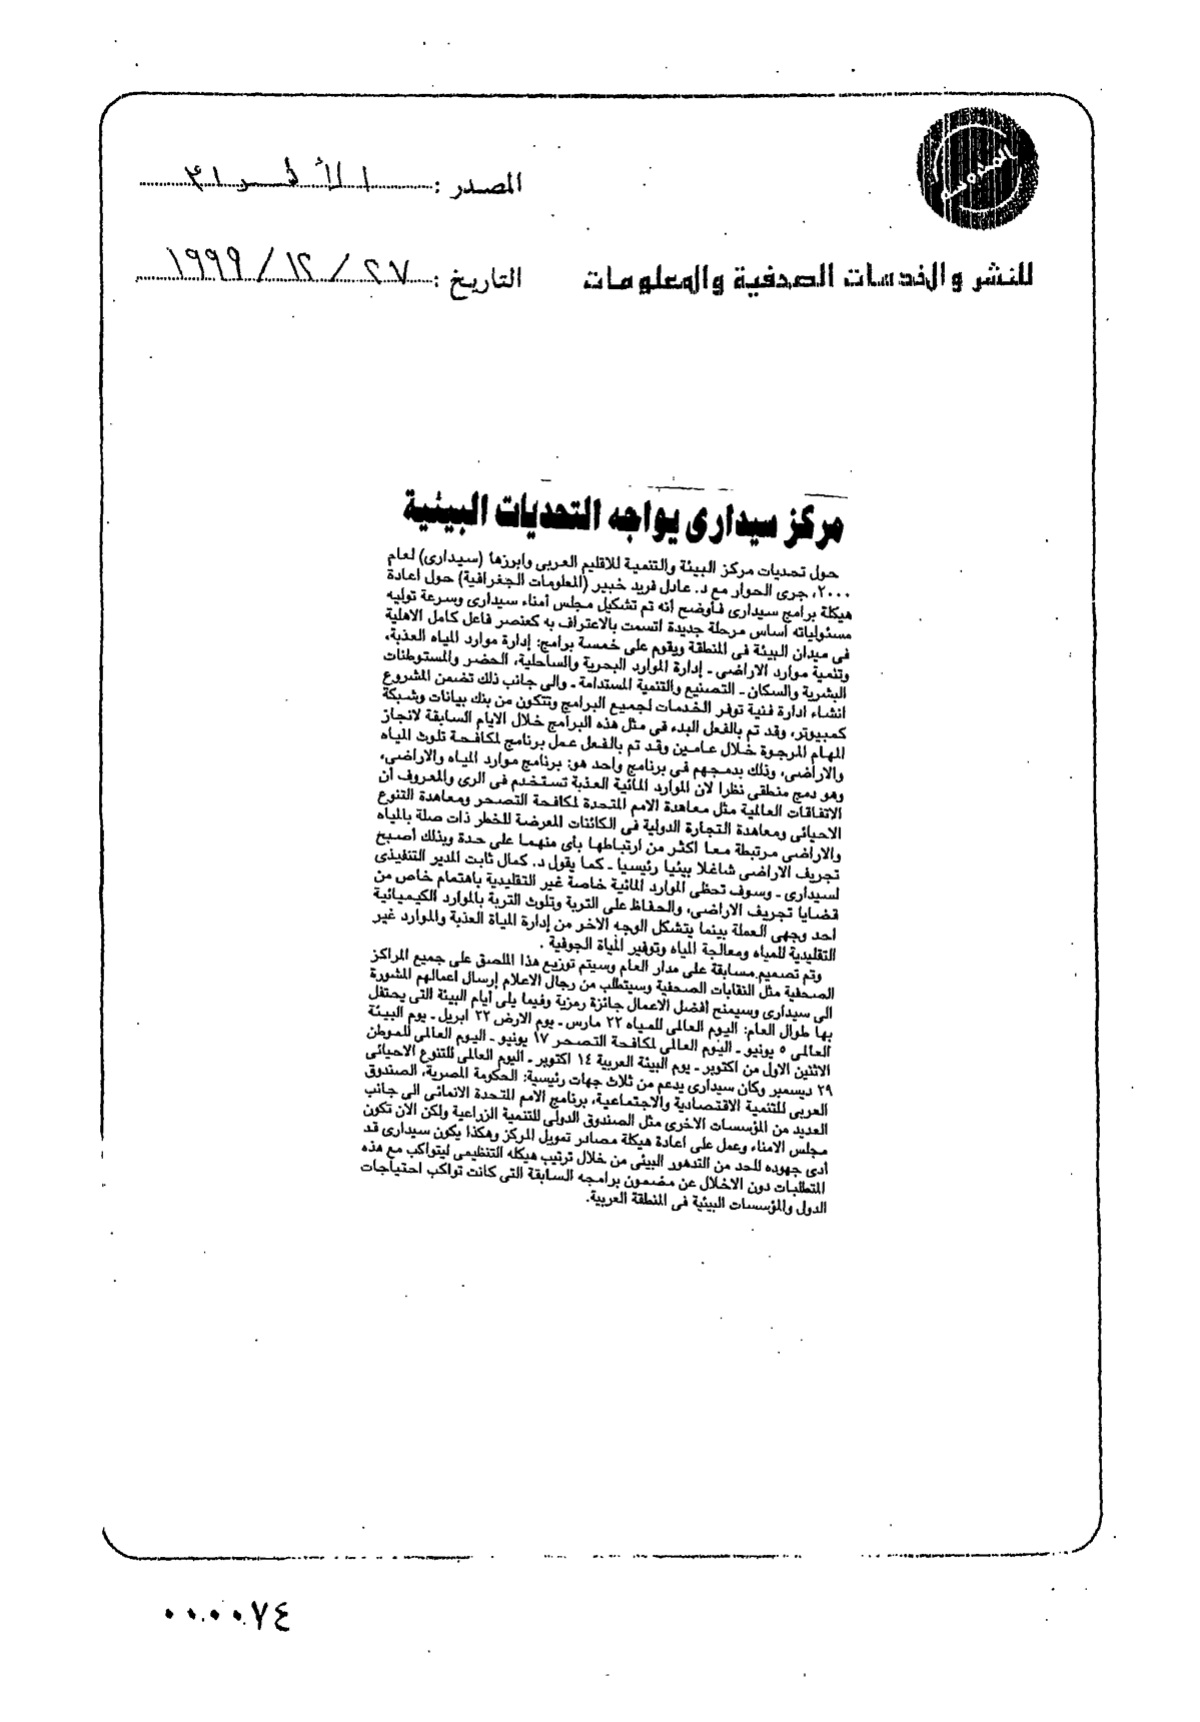 المدوسن
المصدر : الأهرام
للنشر والخدمات الصحفية والمعلومات
التاريخ : ٢٧ / ١٢ / ١٩٩٩
مركز سيدارى يواجه التحديات البيئية
حول تحديات مركز البيئة والتنمية للاقليم العربى وابرزها (سيدارى) لعام
٢٠٠٠، جرى الحوار مع د. عادل فريد خبير (المعلومات الجغرافية) حول اعادة
هيكلة برامج سيدارى فأوضح أنه تم تشكيل مجلس أمناء سيدارى وسرعة توليه
مسئولياته أساس مرحلة جديدة اتسمت بالاعتراف به كعنصر فاعل كامل الاهلية
فى ميدان البيئة فى المنطقة ويقوم على خمسة برامج: إدارة موارد المياه العذبة،
وتنمية موارد الاراضى ـ إدارة الموارد البحرية والساحلية، الحضر والمستوطنات
البشرية والسكان ـ التصنيع والتنمية المستدامة ـ والى جانب ذلك تضمن المشروع
انشاء ادارة فنية توفر الخدمات لجميع البرامج وتتكون من بنك بيانات وشبكة
كمبيوتر، وقد تم بالفعل البدء فى مثل هذه البرامج خلال الايام السابقة لانجاز
المهام المرجوة خلال عامين وقد تم بالفعل عمل برنامج لمكافحة تلوث المياه
والاراضى، وذلك بدمجهم فى برنامج واحد هو: برنامج موارد المياه والاراضى،
وهو دمج منطقى نظرا لان الموارد المائية العذبة تستخدم فى الرى والمعروف ان
الاتفاقات العالمية مثل معاهدة الامم المتحدة لمكافحة التصحر ومعاهدة التنوع
الاحيائى ومعاهدة التجارة الدولية فى الكائنات المعرضة للخطر ذات صلة بالمياه
والاراضى مرتبطة معا اكثر من ارتباطها بأى منهما على حدة وبذلك أصبح
تجريف الاراضى شاغلا بيئيا رئيسيا ـ كما يقول د. كمال ثابت المدير التنفيذى
لسيدارى ـ وسوف تحظى الموارد المائية خاصة غير التقليدية باهتمام خاص من
قضايا تجريف الاراضى، والحفاظ على التربة وتلوث التربة بالموارد الكيميائية
احد وجهى العملة بينما يتشكل الوجه الاخر من إدارة المياة العذبة والموارد غير
التقليدية للمياه ومعالجة المياه وتوفير المياة الجوفية .
وتم تصميم مسابقة على مدار العام وسيتم توزيع هذا الملصق على جميع المراكز
الصحفية مثل النقابات الصحفية وسيتطلب من رجال الاعلام إرسال اعمالهم المشورة
الى سيدارى وسيمنح أفضل الاعمال جائزة رمزية وفيما يلى أيام البيئة التى يحتفل
بها طوال العام: اليوم العالمى للمياه ٢٢ مارس ـ يوم الارض ٢٢ ابريل ـ يوم البيئة
العالمى ٥ يونيو ـ اليوم العالمى لمكافحة التصحر ١٧ يونيو ـ اليوم العالمى للموطن
الاثنين الاول من اكتوبر ـ يوم البيئة العربية ١٤ اكتوبر ـ اليوم العالمى للتنوع الاحيائى
٢٩ ديسمبر وكان سيدارى يدعم من ثلاث جهات رئيسية: الحكومة المصرية، الصندوق
العربى للتنمية الاقتصادية والاجتماعية، برنامج الامم المتحدة الانمائى الى جانب
العديد من المؤسسات الاخرى مثل الصندوق الدولى للتنمية الزراعية ولكن الان تكون
مجلس الامناء وعمل على اعادة هيكلة مصادر تمويل المركز وهكذا يكون سيدارى قد
أدى جهوده للحد من التدهور البيئى من خلال ترتيب هيكله التنظيمى ليتواكب مع هذه
المتطلبات دون الاخلال عن مضمون برامجه السابقة التى كانت تواكب احتياجات
الدول والمؤسسات البيئية فى المنطقة العربية.
٠٠٠٠٧٤